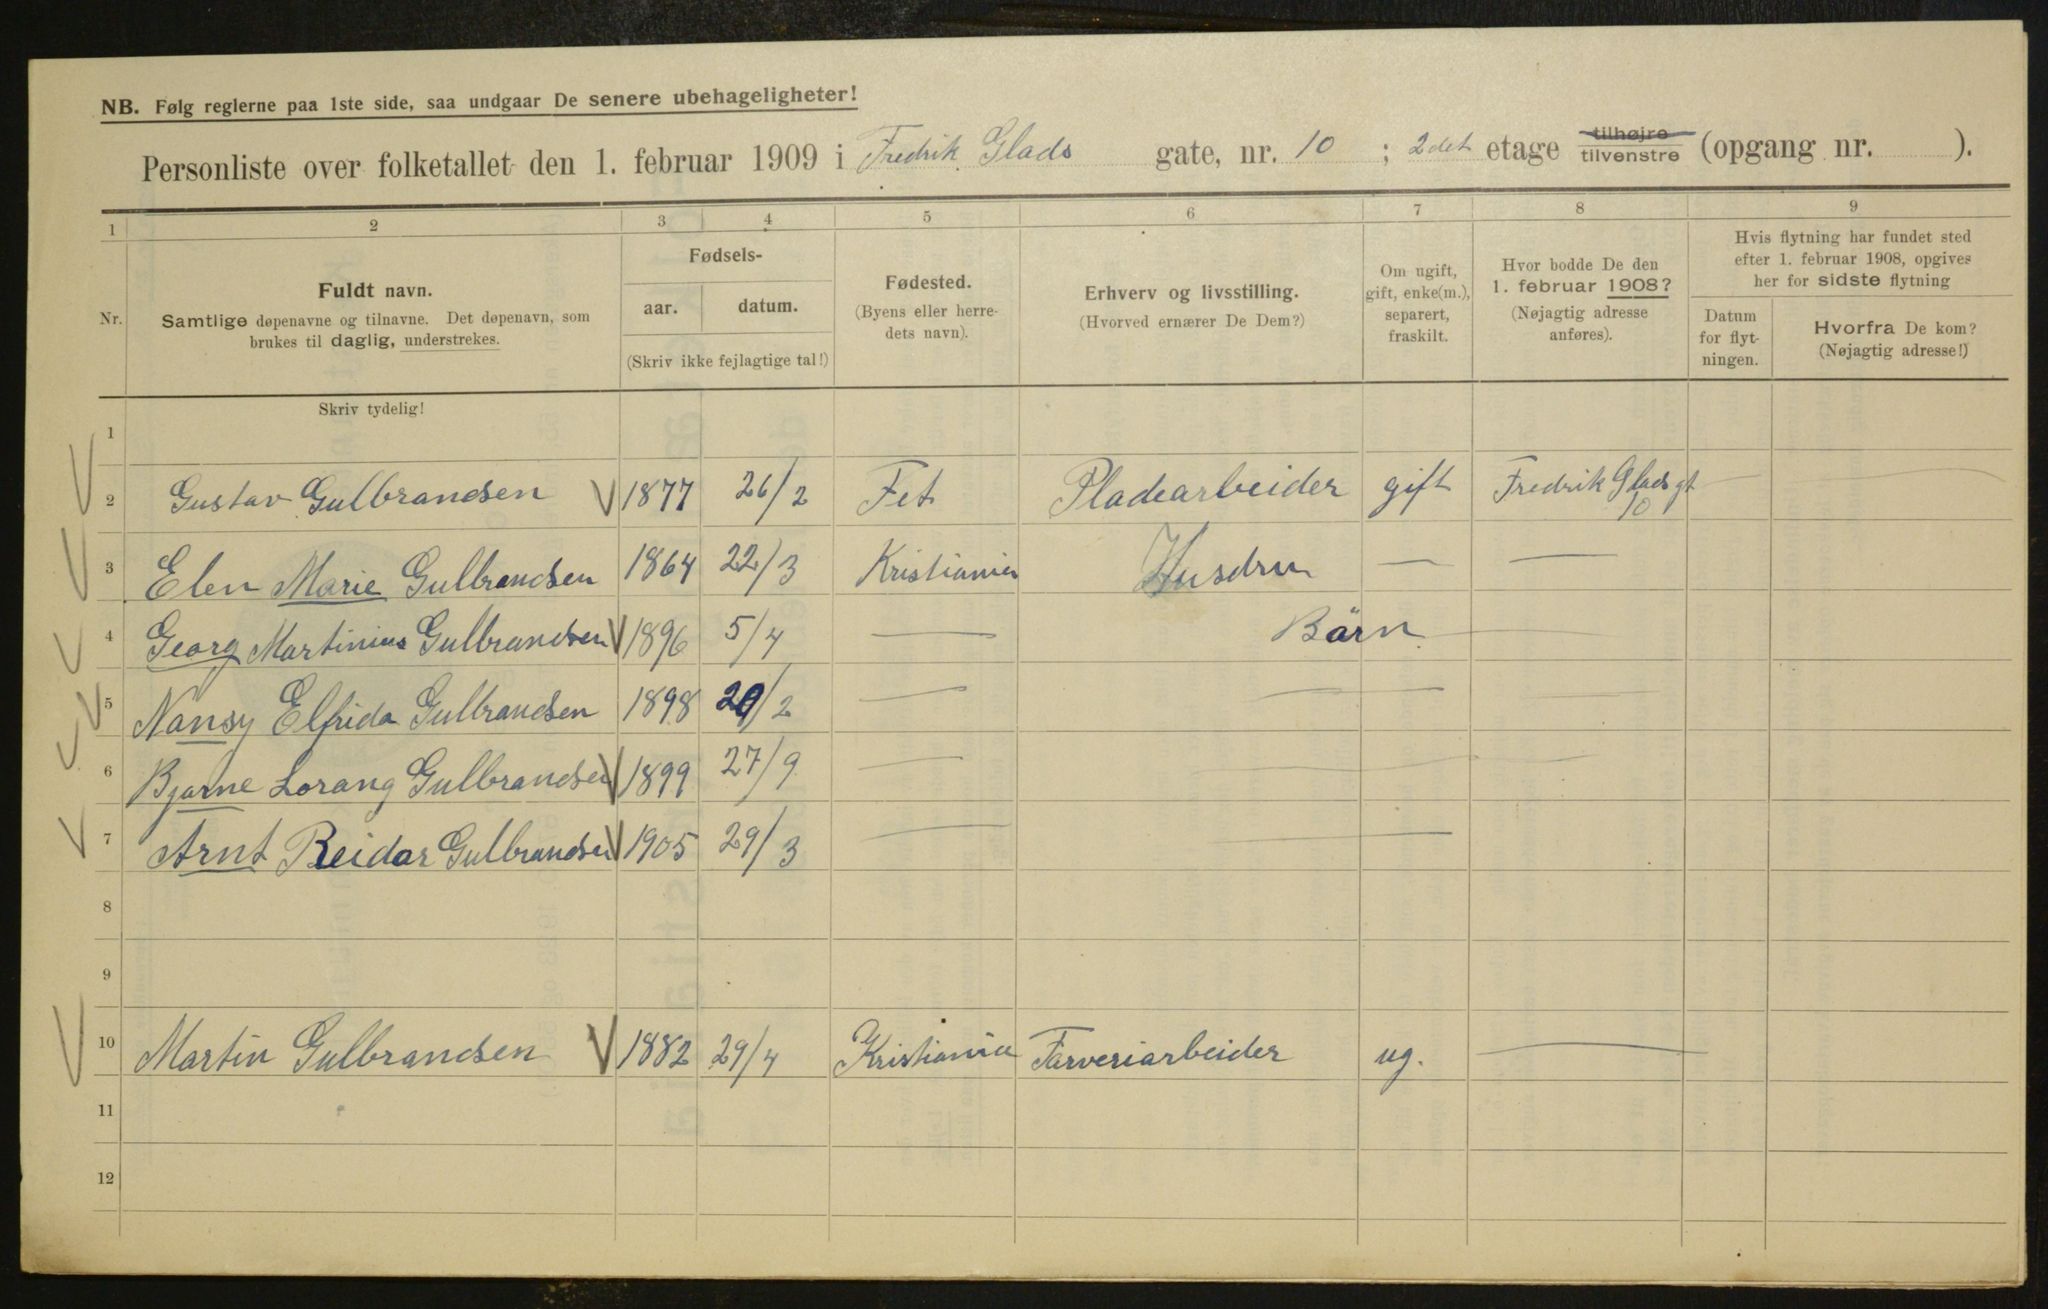 NB. Følg reglerne paa 1ste side, saa undgaar De senere ubehageligheter!
Personliste over folketallet den 1. februar 1909 i Fredrik Glads gate, nr. 10 ; 2det etage tilhøjre tilvenstre (opgang nr. ).
1 2 3 4 5 6 7 8 9
Nr.
Fuldt navn.
Samtlige døpenavne og tilnavne. Det døpenavn, som
brukes til daglig, understrekes.
Fødsels-
aar. datum.
(Skriv ikke fejlagtige tal!)
Fødested.
(Byens eller herre-
dets navn).
Erhverv og livsstilling.
(Hvorved ernærer De Dem?)
Om ugift,
gift, enke(m.),
separert,
fraskilt.
Hvor bodde De den
1. februar 1908?
(Nøjagtig adresse
anføres).
Hvis flytning har fundet sted
efter 1. februar 1908, opgives
her for sidste flytning
Datum
for flyt-
ningen.
Hvorfra De kom?
(Nøjagtig adresse!)
Skriv tydelig!
1
2 Gustav Gulbrandsen 1877 26/2 Fet Pladearbeider gift Fredrik Glads gt 10 —
3 Elen Marie Gulbrandsen 1864 22/3 Kristiania Husdru — —
4 Georg Martinius Gulbrandsen 1896 5/4 — Börn —
5 Nansy Elfrida Gulbrandsen 1898 20/2 — — —
6 Bjarne Lorang Gulbrandsen 1899 27/9 — — —
7 Arnt Reidar Gulbrandsen 1905 29/3 — — —
8
9
10 Martin Gulbrandsen 1882 29/4 Kristiania Farveriarbeider ug. —
11
12